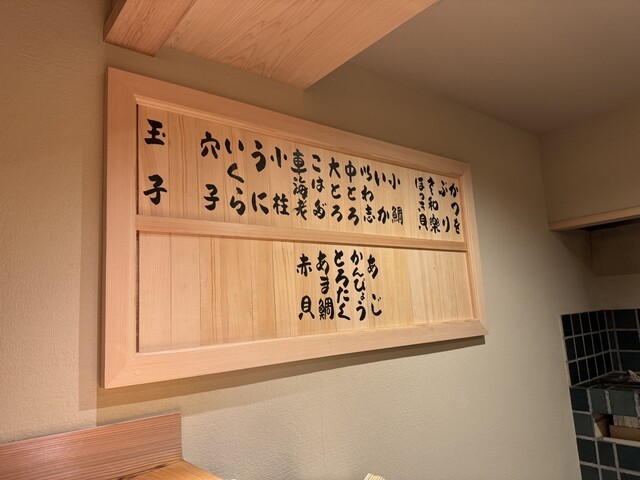 かつを
ぶり
さ和樂
ほっき貝
小鯛
いか
いわ志
中とろ
大とろ
こはだ
車海老
小柱
うに
いくら
穴子
玉子
あじ
かんぴょう
とろたく
あま鯛
赤貝